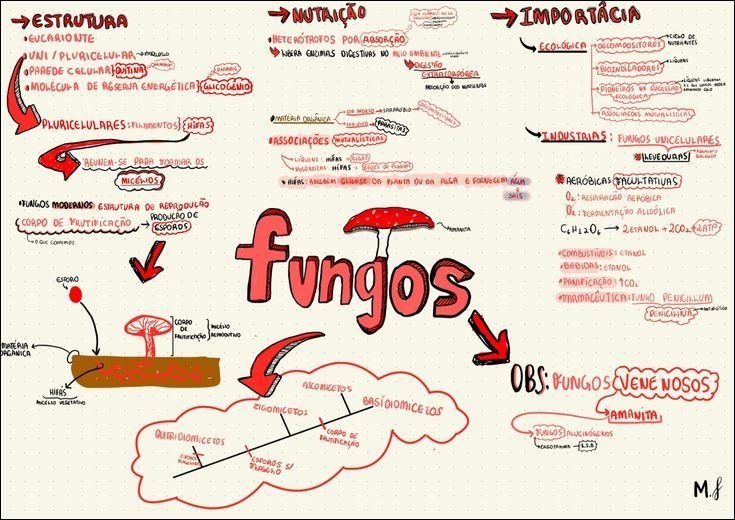 ESTRUTURA
EUCARIONTE
UNI/PLURICELULAR
PAREDE CELULAR QUITINA
MOLÉCULA DE RESERVA ENERGÉTICA GLICOGÊNIO
PLURICELULARES: FILAMENTOS HIFAS
REÚNEM-SE PARA FORMAR OS
MICÉLIOS
FUNGOS MODERNOS ESTRUTURA DE REPRODUÇÃO
CORPO DE FRUTIFICAÇÃO PRODUÇÃO DE ESPOROS
O QUE COMEMOS
ESPORO
MATÉRIA
ORGÂNICA
CORPO
DE
FRUTIFICAÇÃO
MICÉLIO
REPRODUTIVO
HIFAS
MICÉLIO VEGETATIVO
NUTRIÇÃO
HETERÓTROFOS POR ABSORÇÃO
LIBERA ENZIMAS DIGESTIVAS NO MEIO AMBIENTE
DIGESTÃO
EXTRACORPÓREA
ABSORÇÃO DOS NUTRIENTES
MATÉRIA ORGÂNICA
SER MORTO → SAPRÓBIO DECOMPOSITORES
SER VIVO → PARASITAS
ASSOCIAÇÕES MUTUALÍSTICAS
LÍQUENS: HIFAS + ALGAS
MICORRIZAS: HIFAS + RAÍZES DE PLANTAS
HIFAS: RECEBEM GLICOSE DA PLANTA OU DA ALGA E FORNECEM ÁGUA
SAIS
fungos
AMANITA
QUITRIDIOMICETOS
ZIGOMICETOS
ASCOMICETOS
BASÍDIOMICETOS
ESPOROS S/
FLAGELO
CORPO DE
FRUTIFICAÇÃO
IMPORTÂCIA
ECOLÓGICA
DECOMPOSITORES
CICLO DE
NUTRIENTES
BIOINDICADORES
LÍQUENS
PIONEIROS DA SUCESSÃO
ECOLÓGICA
ASSOCIAÇÕES MUTUALÍSTICAS
INDÚSTRIAS: FUNGOS UNICELULARES
LEVEDURAS
AERÓBICAS FACULTATIVAS
O₂: RESPIRAÇÃO AERÓBICA
O₂: FERMENTAÇÃO ALCOÓLICA
C₆H₁₂O₆ → 2ETANOL + 2CO₂ + 2ATP
COMBUSTÍVEIS: ETANOL
BEBIDAS: ETANOL
PANIFICAÇÃO: ↑CO₂
FARMACÊUTICA: FUNGO PENICILLIUM
PENICILINA
ANTIBIÓTICO
OBS: FUNGOS VENENOSOS
AMANITA
FUNGOS ALUCINÓGENOS
L.S.D
M.f